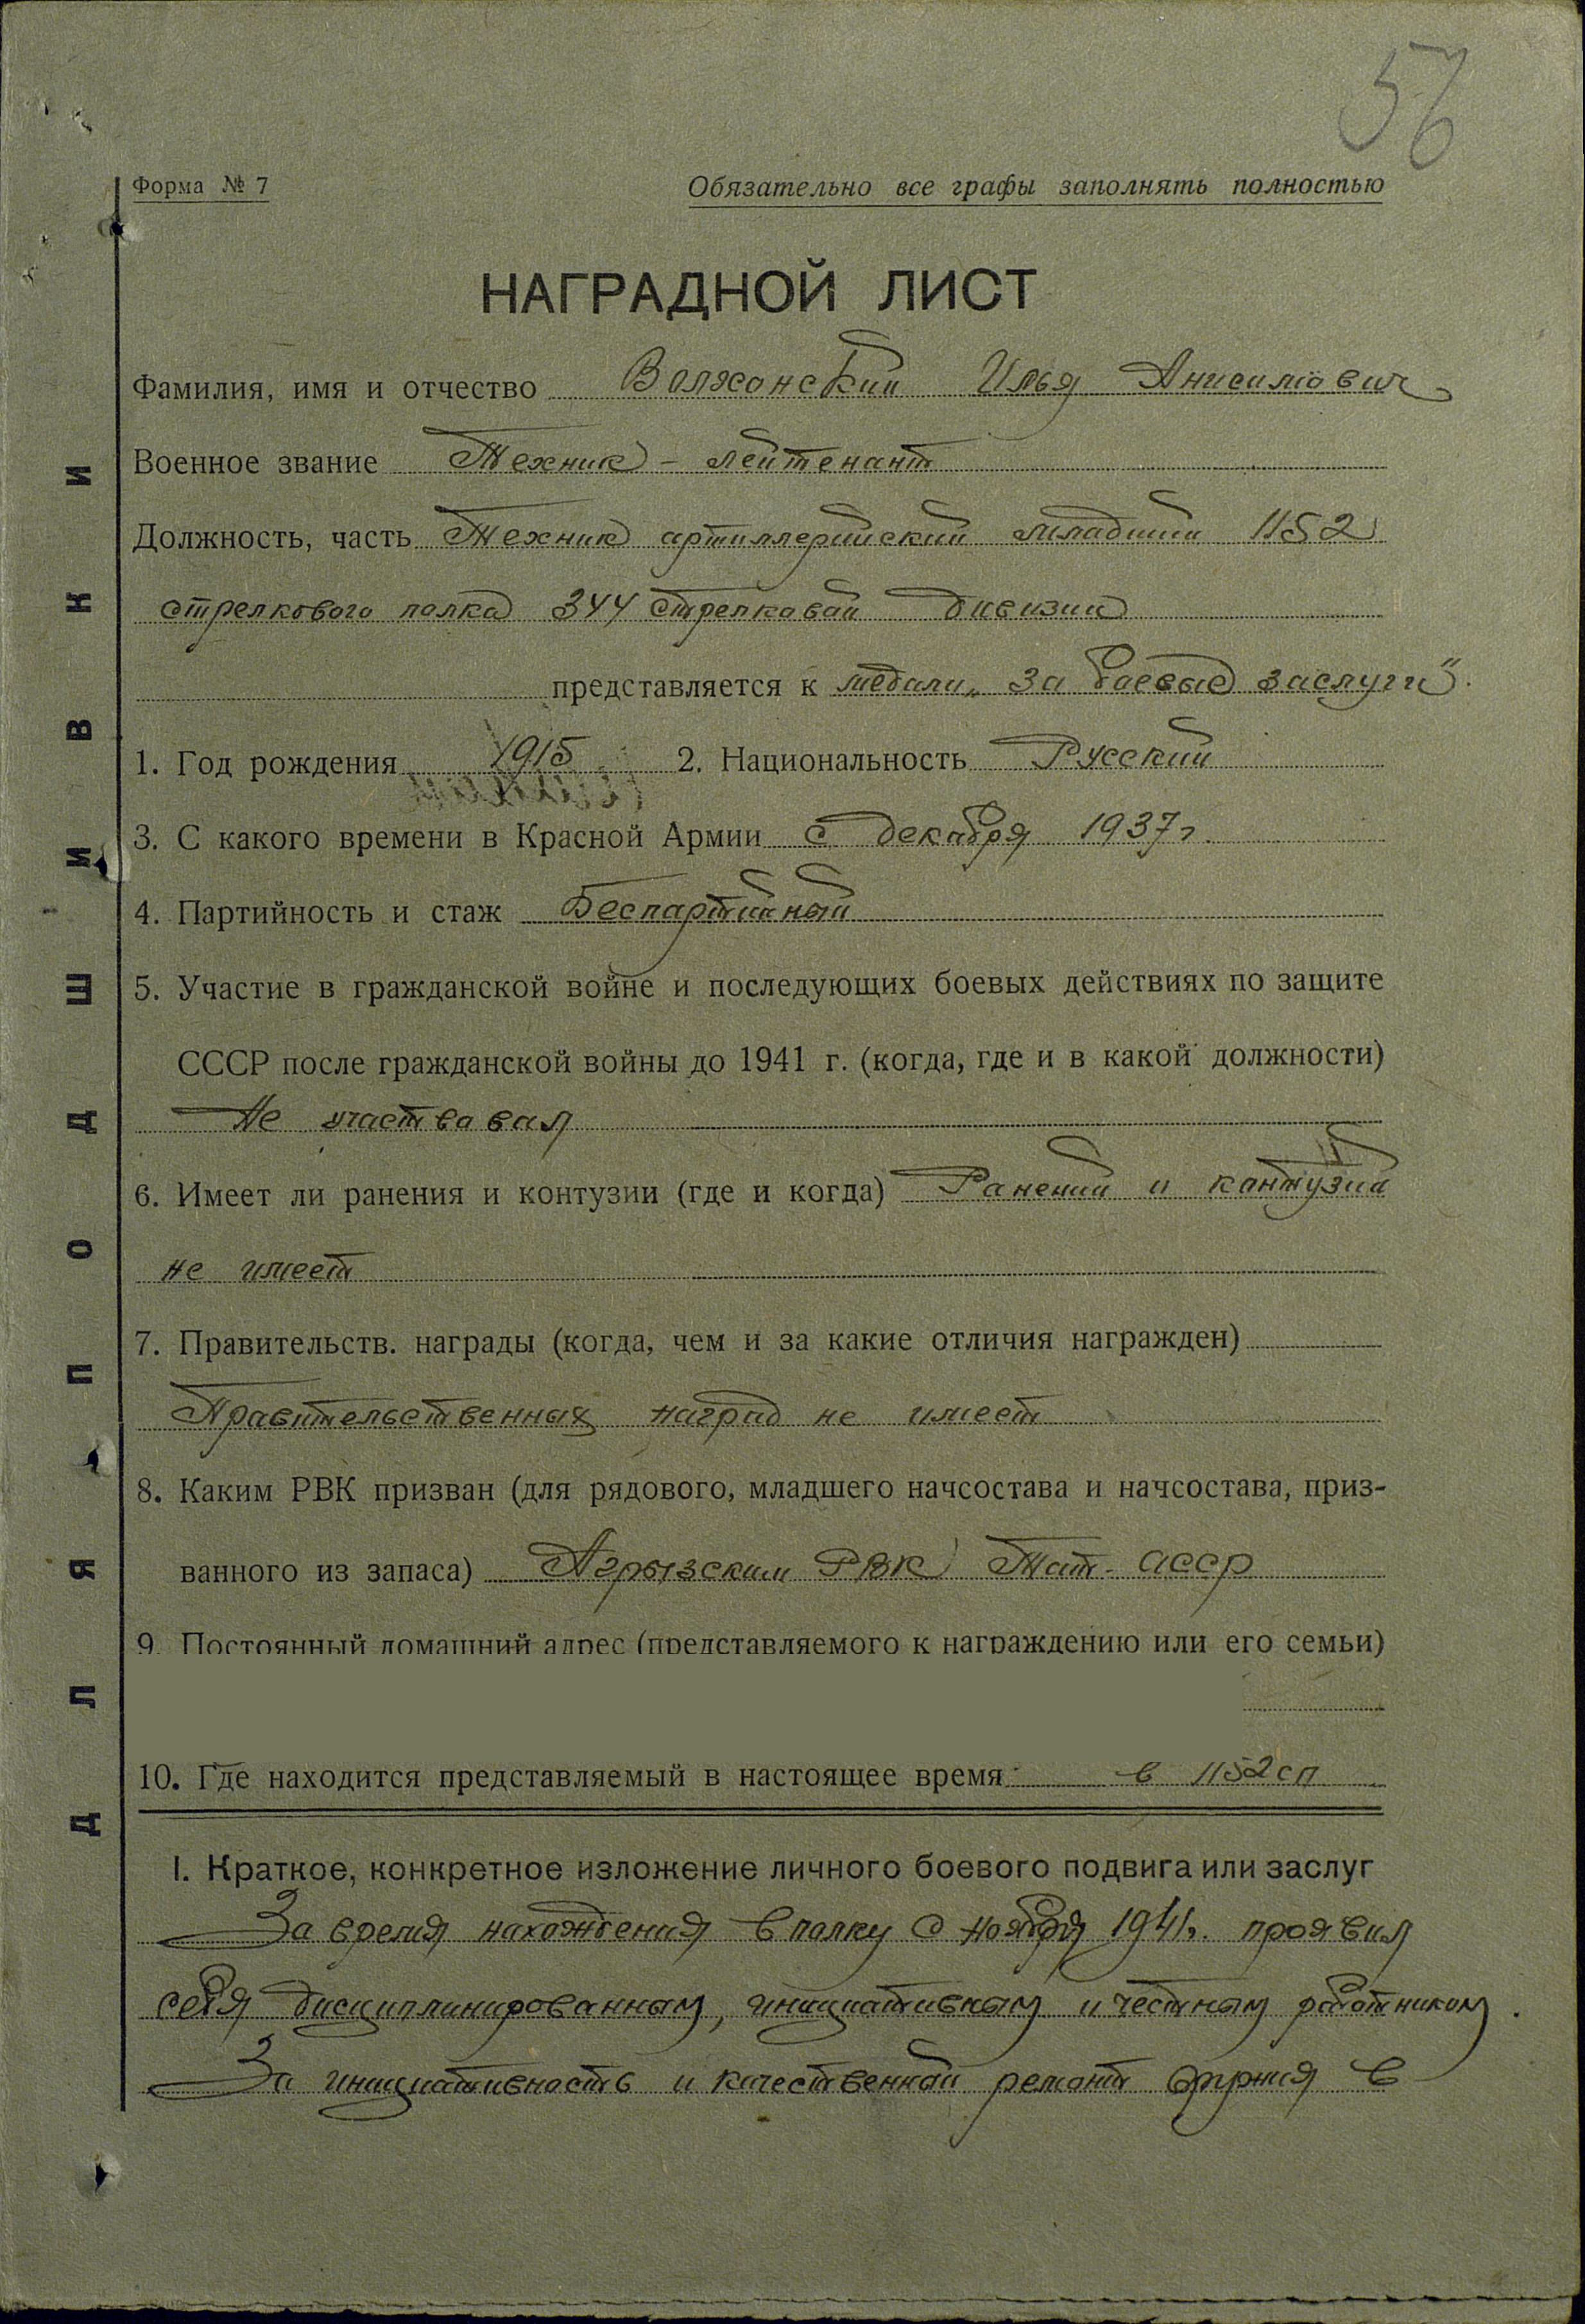 56
Форма № 7
Обязательно все графы заполнять полностью
НАГРАДНОЙ ЛИСТ
Фамилия, имя и отчество Волжонский Илья Анисимович
Военное звание Техник - лейтенант
Должность, часть Техник артиллерийский младший 1152
стрелкового полка 344 стрелковой дивизии
представляется к медали „За боевые заслуги"
1. Год рождения 1915 2. Национальность Русский
3. С какого времени в Красной Армии с декабря 1937 г.
4. Партийность и стаж Беспартийный
5. Участие в гражданской войне и последующих боевых действиях по защите
СССР после гражданской войны до 1941 г. (когда, где и в какой должности)
Не участвовал
6. Имеет ли ранения и контузии (где и когда) Ранений и контузий
не имеет
7. Правительств. награды (когда, чем и за какие отличия награжден)
Правительственных наград не имеет
8. Каким РВК призван (для рядового, младшего начсостава и начсостава, приз-
ванного из запаса) Агрызским РВК Тат. АССР
9. Постоянный домашний адрес (представляемого к награждению или его семьи)
10. Где находится представляемый в настоящее время в 1152 сп
I. Краткое, конкретное изложение личного боевого подвига или заслуг
За время нахождения в полку с ноября 1941г. проявил
себя дисциплинированным, инициативным и честным работником.
За инициативность и качественной ремонт оружия в
ДЛЯ ПОДШИВКИ